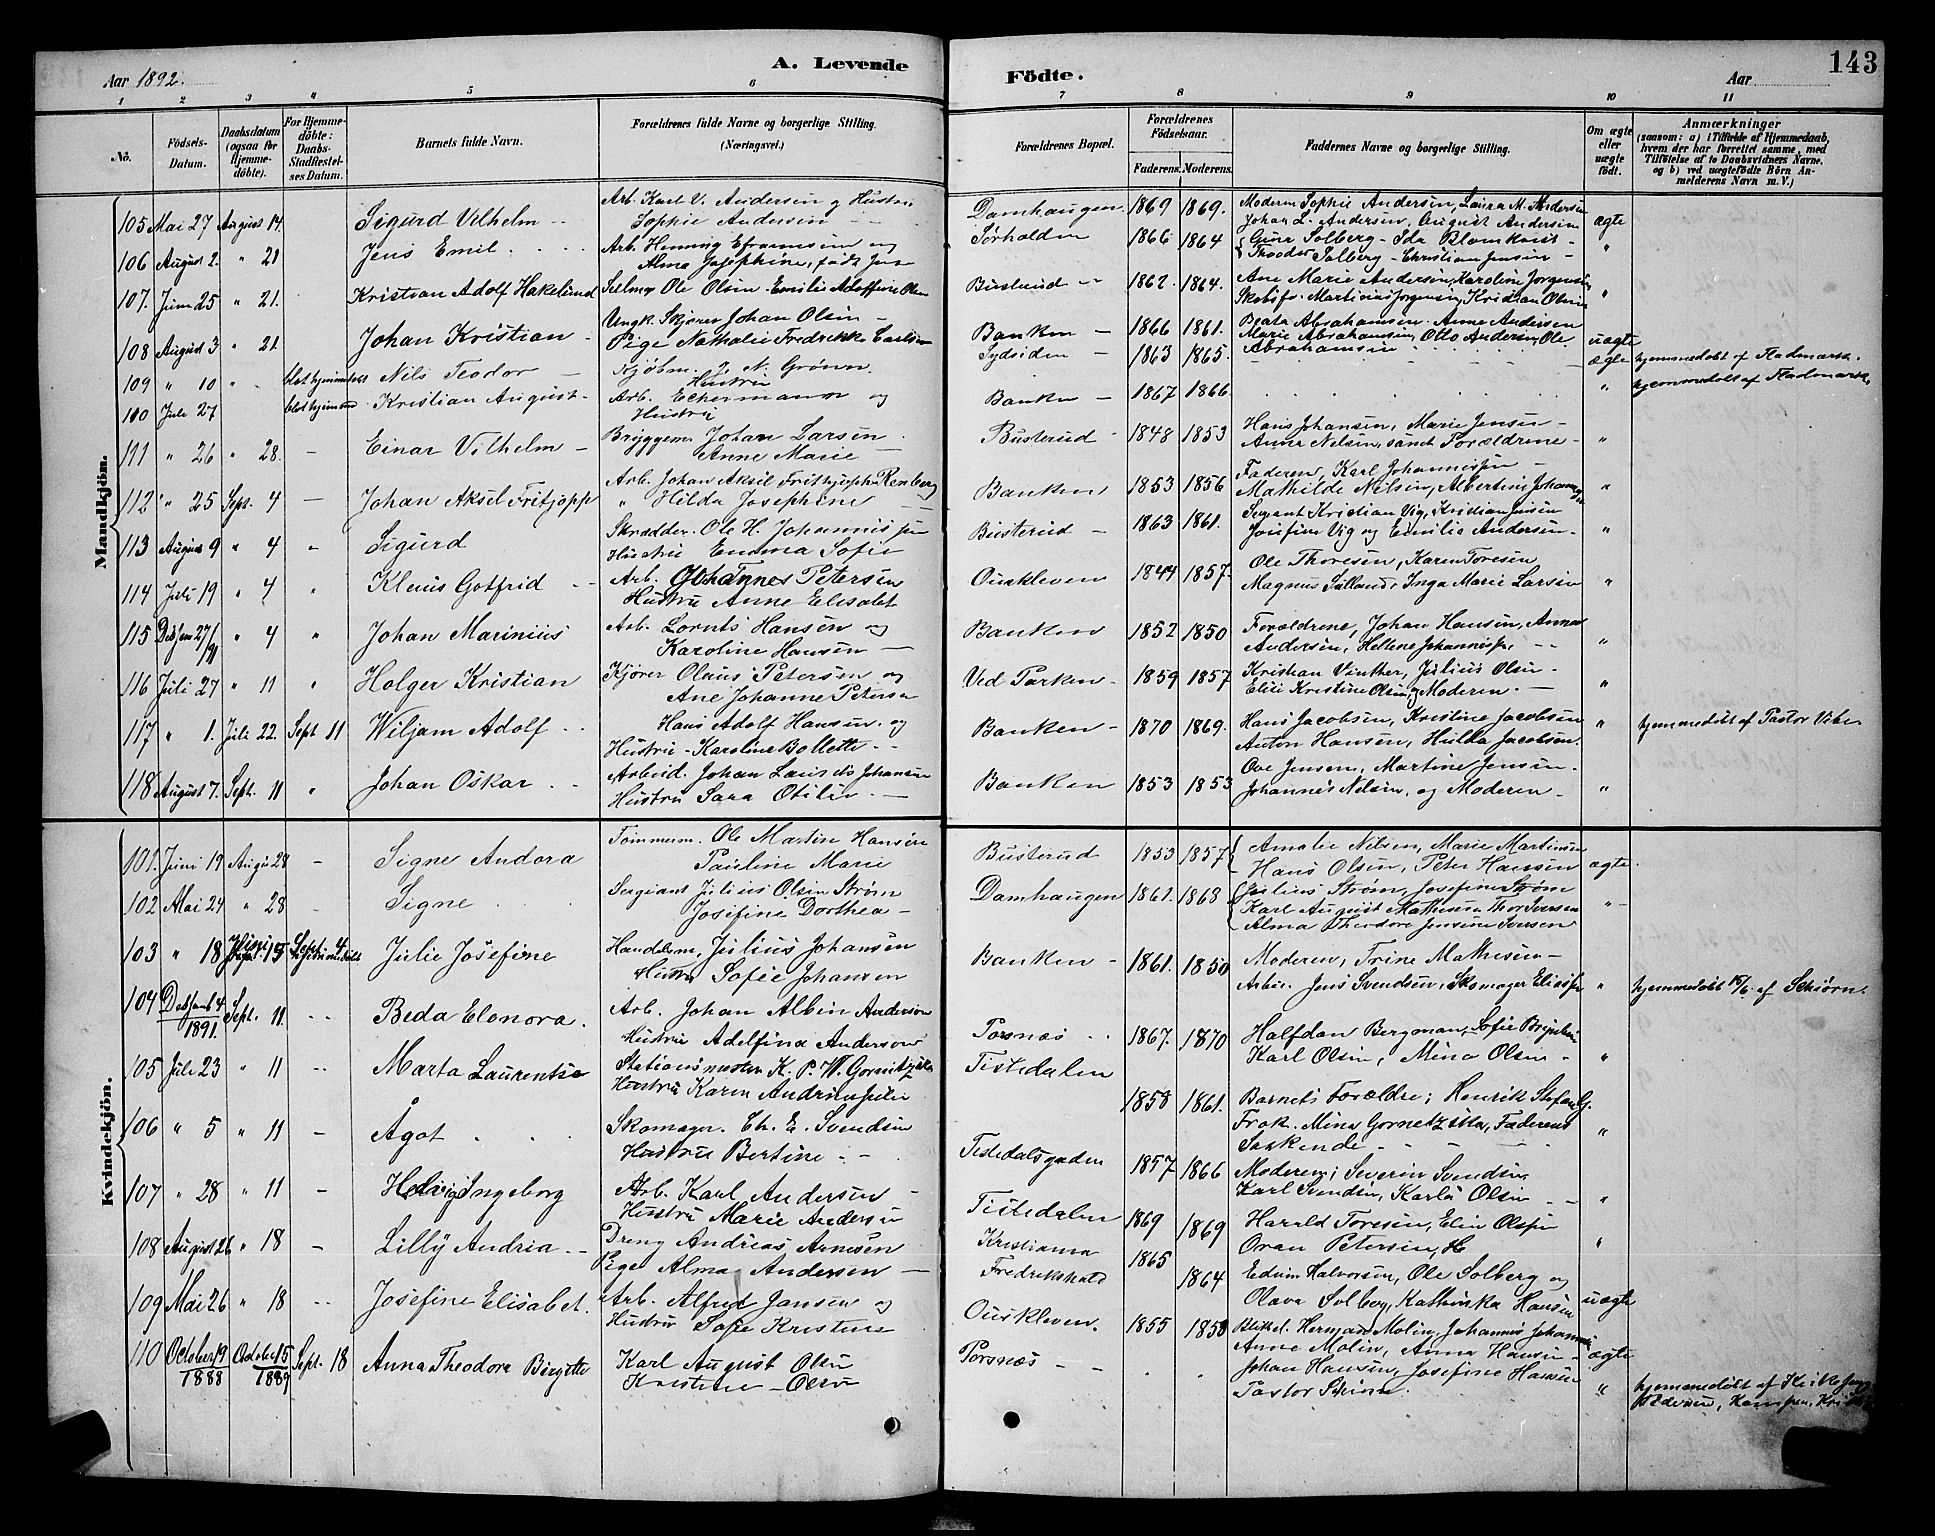 Aar 1892.
A. Levende
Födte.
Aar
143
1 2 3 4 5 6 7 8 9 10 11
No.
Födsels-Datum.
Daabsdatum (ogsaa for Hjemme-döbte).
For Hjemme-döbte: Daabs-Stadfestel-ses Datum.
Barnets fulde Navn.
Forældrenes fulde Navne og borgerlige Stilling. (Næringsvei.)
Forældrenes Bopæl.
Forældrenes Födselsaar.
Faderens. Moderens.
Faddernes Navne og borgerlige Stilling.
Om ægte eller uægte födt.
Anmærkninger
(saasom: a) i Tilfælde af Hjemmedaab, hvem der har forrettet samme, med Tilföielse af to Daabsvidners Navne, og b) ved uægtefödte Börn An-melderens Navn m. V.)
Mandkjön.
105 Mai 27 August 14. Sigurd Vilhelm Arb. Karl V. Andersen og Hustru Sophie Andersen Damhaugen 1869 1869. Moderen Sophie Andersen, Laura M. Andersen Johan L. Andersen, August Andersen ægte
106 August 2. " 21 Jens Emil Arb. Henning Efraimsen og Alma Josephine, født Jense Sørhalden 1866 1864 Guna Solberg - Ida Blomkvist - Theodor Solberg - Christian Jensen "
107. Juni 25 " 21. Kristian Adolf Hakelund Ole Olsen - Emilie Adolfine Olsen Busterud 1862. 1864. Ane Marie Andersen, Karoline Jorgensen Martinius Jorgensen, Kristian Olsen "
108 August 3 " 21 Johan Kristian Ungk. Skjører Johan Olsen Pige Nathalie Fredrikke Carlsen Banken 1866 1861. Beata Abrahamsen. Anne Andersen Marie Abrahamsen, Otto Andersen, Ole Abrahamsen uægte
109 " 10 " blot hjemmedøbt Nils Teodor Kjøbm. J. N. Grønn Hustru Sydsiden 1863 1865. ægte hjemmedøbt af Fladmark.
110 Juli 27 Kristian August Arb. Eckermann og Hustru Banken 1867 1866 " hjemmedøbt af Fladmark
111 " 26 " 28. Einar Vilhelm Bryggem. Johan Larsen Anne Marie Busterud 1848 1853 Hans Johansen, Marie Jensen Anna Nelsen, samt Forældrene "
112 " 25 Sept. 4 Johan Aksel Fritjopp Arb. Johan Aksil Frithjoph Renberg " Hilda Josephine Banken 1853 1856 Faderen, Karl Johannissen Mathilde Nilsen, Albertine "
113 August 9 " 4 " Sigurd Skrædder. Ole H. Johannissen Hustru Emma Sofie Busterud 1863 1861. Sergeant Kristian Vig, Kristian Jensen Josefine Vig og Emilia Andersen "
114 Juli 19 " 4 " Klaus Gotfrid Arb. Johannes Petersen Hustru Anne Elisabet Ouskleven 1844 1857 Ole Thoresen, Karen Toresen Magnus Inga Marie Larsen "
115 Desem 27/91 " 4 " Johan Marinius Arb. Lornts Hansen og Karoline Hansen Banken 1852 1850 Forældrene, Johan Hansen, Anna Andersen, Hellene Johannissen "
116 Juli 27 " 11 " Holger Kristian Kjører Olaus Petersen og Ane Johanne Petersen Ved Parken 1859 1857 Kristian Vinther, Julius Olsen Elise Kristine Olsen, og Moderen. "
117 " 1. Juli 22. Sept 11 Wiljam Adolf Hans Adolf Hansen og Hustru - Karoline Bollette Banken 1870 1869. Hans Jacobsen, Kristine Jacobsen Anton Hansen, Hulda Jacobsen. " hjemmedøbt af Pastor Vibe
118 August 7. Sept. 11 " Johan Oskar Arbeid. Johan Laurits Johansen Hustru Sara Otilie Banken 1853 1853 Ove Jensen, Martine Jensen Johannes Nelsen, og Moderen "
Kvindekjön.
101. Juni 19 Augus 28 Signe Andora Tømmerm. Ole Martin Hansen Pauline Marie Busterud 1853 1857 Amalie Nilsen, Marie Martinsen Hans Olsen, Peter Hansen ægte
102 Mai 24 " 28 Signe Sergiant Julius Olsen Strøm Josefine Dorthea Damhaugen 1861. 1868 Julius Strøm, Josefine Strøm Karl August Mathisen Thor Iversen Alma Theodore Jensine Iversen "
103 " 18 15 Septr. 4 Julie Josefine Handelsm, Julius Johansen Hustru Sofie Johansen Banken 1861. 1850 Moderen, Trine Mathisen Arbeir. Jens Svendsen, Skomager Eliassen " hjemmedøbt 15/6 af Schiørn.
104 Desemb 4 1891. Sept. 11. Beda Elonora. Arb. Johan Albin Anderson Hustru Adelfina Anderson Porsnæs 1867. 1870 Halfdan Bergman, Sofie Karl Olsen, Mina Olsen "
105 Juli 23 " 11 Marta Laurentse Stationsmester K. P. W. Hustru Karen Andrine Julie Tistedalen 1858 1861. Barnets Forældre; Henrik Frøk. Mina Faderens Søskende "
106 " 5 " 11 Ågot Skomager. Ch. E. Svendsen Hustru Bertine Tistedalsgaden 1857 1866 Moderen; Severin Svendsen Karl Svendsen, Karla Olsen "
107 " 28 " 11 Hedvig Ingeborg Arb. Karl Andersen Hustru Marie Andersen Tistedalen 1869 1869 Harald Toresen, Elin Olsen Oran Petersen, H "
108 August 26 " 18 Lilly Andria Dreng Andreas Arnesen Pige Alma Andersen Kristiania Fredrikshald 1865 1864 Edvin Halvorsen, Ole Solberg og Olava Solberg, Kathinka Hansen uægte
109 Mai 26 " 18 Josefine Elisabet. Arb. Alfred Jansen og Hustru Sofie Kristine Ouskleven. 1855 1858 Bliksl. Herman Molin, Johannes Johannes Anne Molin, Anna Hansen ægte
110 October 19 1888 October 15 1889 Sept. 18 Anna Theodora Birgitte Karl August Olsen Kristine Olsen Porsnæs Johan Hansen, Josefine Hansen Pastor Schiørn. " hjemmedøbt af Pedersen,